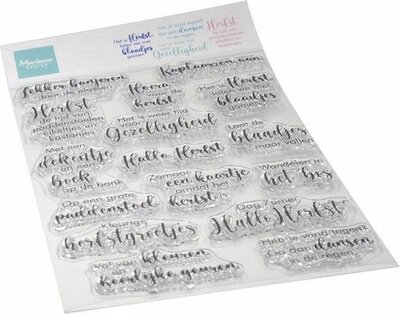 Marianne
DESIGN
Het is Herfst
laten we met
blaadjes
gooien
Heb je wind tegen?
Ga dan dansen
in de regen
Gezelligheid
Herfst
Lekker banjeren
door de
Hoera
voor de
herfst
Kaplaarzen aan
Herfst
de tijd van
paddenstoelen
Het is weer tijd
voor
Gezelligheid
Het is Herfst
laten we met
blaadjes
gooien
Met een
dekentje
en een
boek
op de bank
Hallo Herfst
Laat de
blaadjes
maar vallen
Zomaar
een kaartje
omdat het
herfst is
Wandelen in
het bos
Op een grote
paddenstoel
Kleurige
herfstgroetjes
Dag Zomer
Hallo Herfst
Vol van kleuren
en
heerlijke geuren
Heb je wind tegen?
Ga dan dansen
in de regen